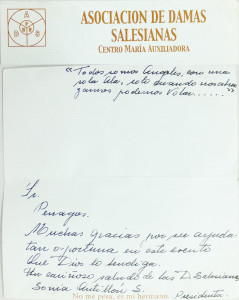 A
D S
ASOCIACION DE DAMAS
SALESIANAS
CENTRO MARÍA AUXILIADORA
"Todos somos Angeles, con una
sola Ala, solo cuando nos abra
zamos podemos Volar....."
Sr.
Penagos.
Muchas gracias por su ayuda
tan oportuna en este evento
Que Dios lo bendiga.
Un cariñoso saludo de las D. Salesianas
Sonia S.
No me pesa, es mi hermano. Presidenta